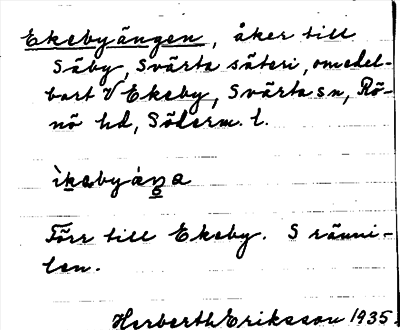 Ekebyängen, åker till
Säby, Svärta säteri, omedel-
bart V Ekeby, Svärta sn, Rö-
nö hd, Söderm. l.
ìkebyáŋa
Förr till Ekeby. S ränni-
len.
Herberth Eriksson 1935.